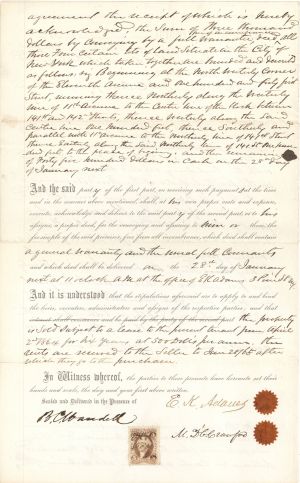 agreement the receipt of which is hereby
acknowledged, the Sum of Three Thousand
dollars by Conveying by a full warranty deed all
those Four Certain lots of land Situate in the City of
New York which taken together are bounded and
as follows, viz Beginning at the North Westerly Corner
of the Eleventh Avenue and One hundred and forty first
Street, running thence Northerly along the Westerly
line of 11th Avenue to the Center line of the block between
141st and 142d Streets, thence Westerly along the Said
Centre line One hundred feet, thence Southerly and
parallel with 11th Avenue to the Northerly line of 141st Street
thence Easterly along the Said Northerly line of 141st St One hundred
feet to the place of beginning, and the remaining
of Forty five hundred dollars in Cash on the 28th day
of January next
And the said part y of the first part, on receiving such payment at the time
and in the manner above mentioned, shall at his own proper costs and expense,
execute, acknowledge and deliver to the said part y of the second part or to his
assigns, a proper deed, for the conveying and assuring to him or them, the
fee simple of the said premises, free from all encumbrance, which deed shall contain
a general warranty and the usual full Covenants
and which deed shall be delivered on the 28th day of January
next at 11 o'clock A.M. at the office of E K Adams
And it is understood that the stipulations aforesaid are to apply to and bind
the heirs, executors, administrators and assigns of the respective parties
the property
is sold Subject to a lease to the present tenant from April
1864 for Six years at 300 dollars per annum, the
rents are secured to the Seller to June 20/65 after
which they go to the purchaser.
In Witness whereof, the parties to these presents have hereunto set their
hands and seals, the day and year first above written.
Sealed and Delivered in the Presence of
E. K. Adams
B. C. Wandell
M. D. C. Crawford